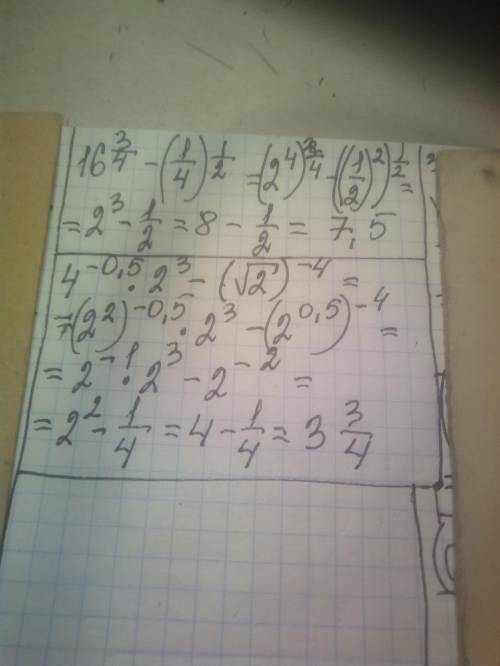 16^{3/4} - (1/4)^{1/2} = (2^4)^{3/4} - ((1/2)^2)^{1/2} =
= 2^3 - 1/2 = 8 - 1/2 = 7,5
4^{-0,5} · 2^3 - (√2)^{-4} =
= (2^2)^{-0,5} · 2^3 - (2^{0,5})^{-4} =
= 2^{-1} · 2^3 - 2^{-2} =
= 2^2 - 1/4 = 4 - 1/4 = 3 3/4